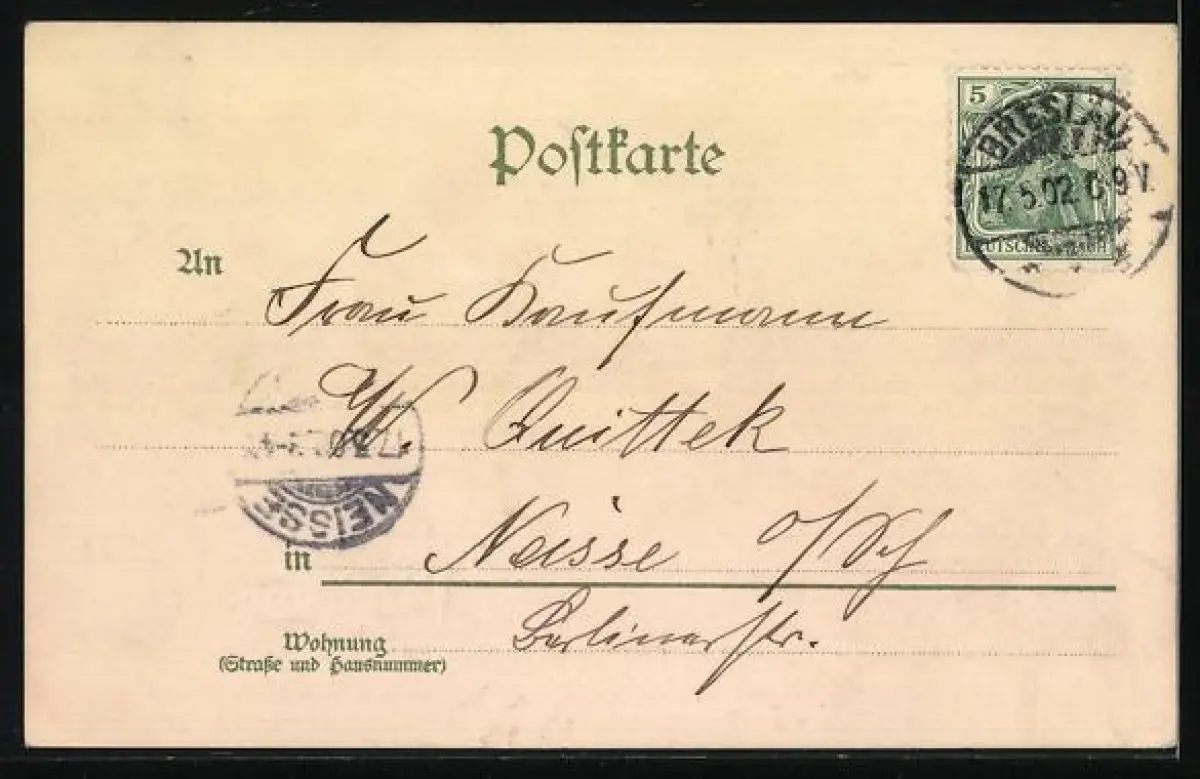 Postkarte
5
BRESLAU
17.5.02. 8-9V.
DEUTSCHES REICH
An Frau Kaufmann
Quittek
NEISSE
in Neisse o/Sch
Wohnung Berlinerstr.
(Straße und Hausnummer)